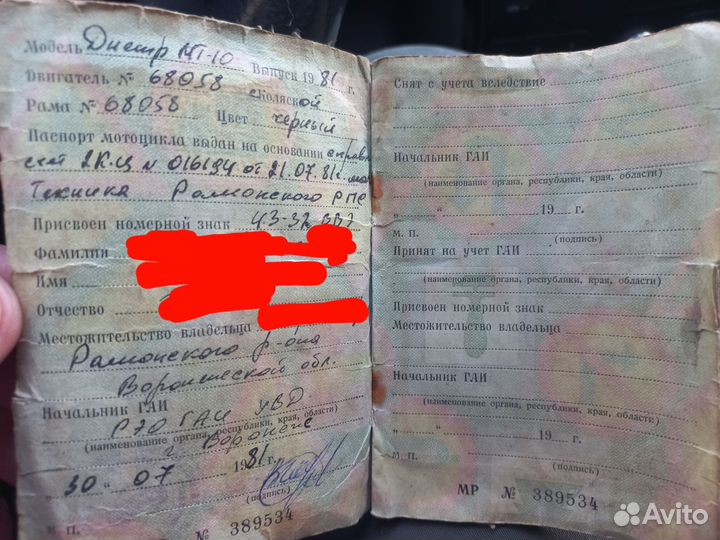 Модель Днепр МТ-10 Выпуск 1981 г.
Двигатель № 68058 с коляской
Рама № 68058 Цвет черный
Паспорт мотоцикла выдан на основании справка
счет 2КЦ № 016194 от 21.07.81г. маг
Техника Рамонского РПС
Присвоен номерной знак 43-32 ВВЭ
Фамилия
Имя
Отчество
Местожительство владельца
Рамонского р-она
Воронежской обл.
Начальник ГАИ
РЭО ГАИ УВД
(наименование органа, республики, края, области)
г. Воронеж
„ 30 “ 07 1981 г.
(подпись)
м. п.
№ 389534
Снят с учета вследствие
Начальник ГАИ
(наименование органа, республики, края, области)
„ “ 19 г.
м. п. (подпись)
Принят на учет ГАИ
(наименование органа, республики, края, области)
Присвоен номерной знак
Местожительство владельца
Начальник ГАИ
(наименование органа, республики, края, области)
„ “ 19 г.
м. п. (подпись)
МР № 389534
Avito